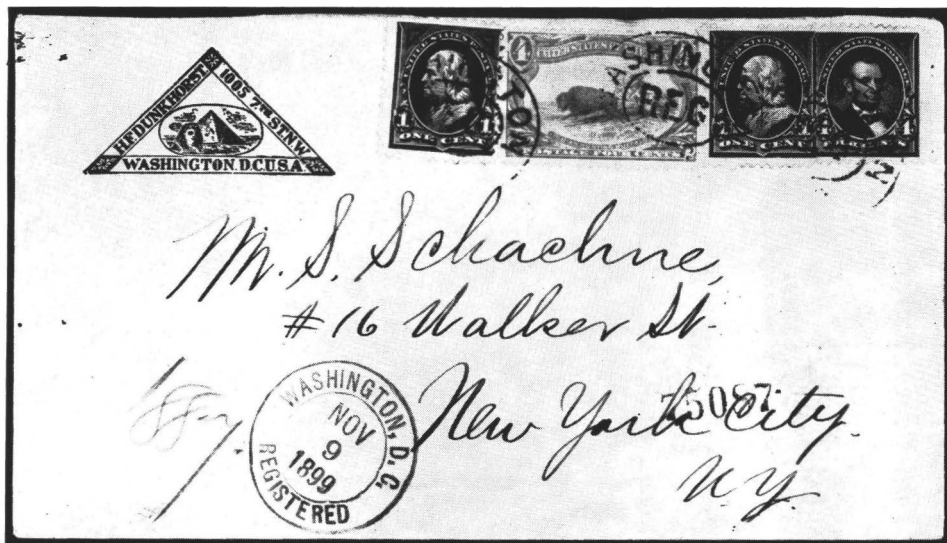 H.F. DUNKHORST
1005 7TH ST. N.W.
WASHINGTON. D.C. U.S.A
1 1
ONE CENT
4
ONE CENT
WASHINGTON
REG
Mr. S. Schachne,
#16 Walker St.
New York City.
N Y
WASHINGTON, D. C.
NOV
9
1899
REGISTERED